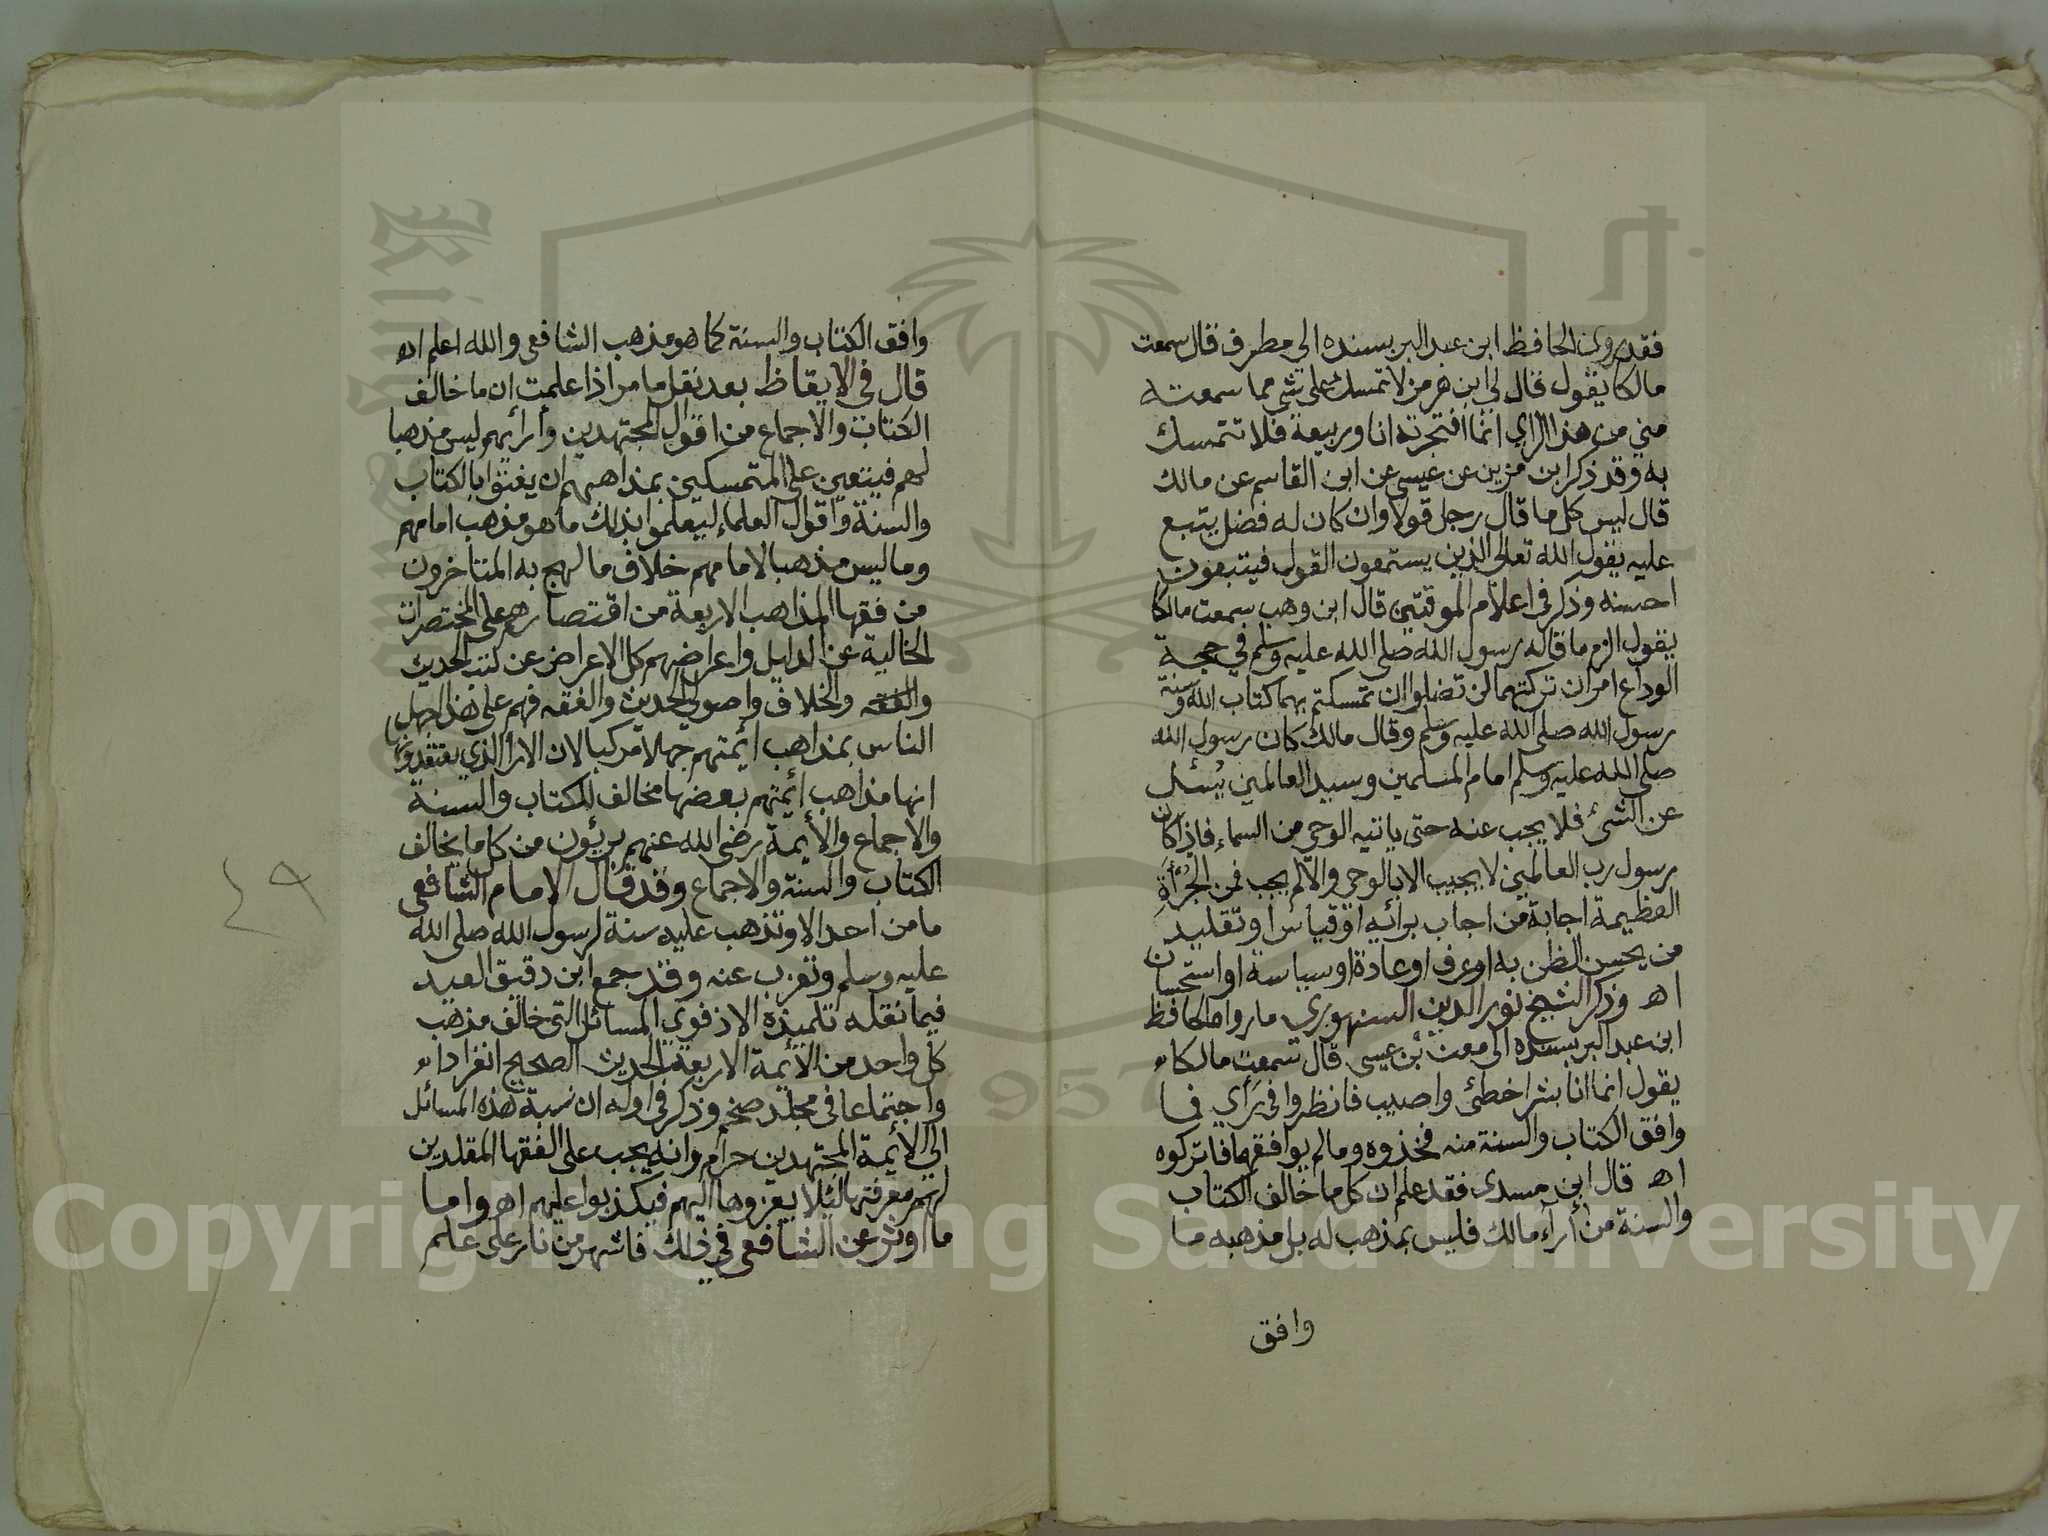 فقد روى الحافظ ابن عبد البر بسنده الي مطرف قال سمعت
مالكا يقول قال لي ابن هرمز لا تمسك على شي مما سمعته
مني من هذا الراي انما افتجرته انا وربيعة فلا تتمسك
به وقد ذكر ابن مزين عن عيسى عن ابن القاسم عن مالك
قال ليس كل ما قال رجل قولا وان كان له فضل يتبع
عليه يقول الله تعالى الذين يستمعون القول فيتبعون
احسنه وذكر في اعلام الموقنين قال ابن وهب سمعت مالكا
يقول الزم ما قاله رسول الله صلى الله عليه وسلم في حجة
الوداع امران تركتهما لن تضلوا ان تمسكتم بهما كتاب الله وسنة
رسول الله صلى الله عليه وسلم وقال مالك كان رسول الله
صلى الله عليه وسلم امام المسلمين وسيد العالمين يُسئل
عن الشئ فلا يجب عنه حتى ياتيه الوحي من السماء فاذا كان
رسول رب العالمين لا يجيب الا بالوحي والا لم يجب فمن الجُرأَةِ
العظيمة اجابة من اجاب برائيه او قياس او تقليد
من يحسن الظن به او عرف او عادة او سياسة او استحسان
اه وذكر الشيخ نور الدين السنهوري ما رواه الحافظ
ابن عبد البر بسنده الى معن بن عيسى قال سمعت مالكا
يقول انما انا بشر اخطئ واصيب فانظروا في رَأيي فما
وافق الكتاب والسنة منه فخذوه وما لم يوافقهما فاتركوه
اه قال ابن مسدى فقد علم ان كل ما خالف الكتاب
والسنة من أرآء مالك فليس بمذهب له بل مذهبه ما
وافق
وافق الكتاب والسنة كما هو مذهب الشافعي والله اعلم اه
قال في الايقاظ بعد نقل ما مر اذا علمت ان ما خالف
الكتاب والاجماع من اقوال المجتهدين وأرأيهم ليس مذهبا
لهم فيتعين على المتمسكين بمذاهبهم ان يعتنوا بالكتاب
والسنة واقوال العلماء ليعلموا بذلك ما هو مذهب امامهم
وما ليس مذهبا لامامهم خلاف ما لهج به المتاخرون
من فقها المذاهب الاربعة من اقتصارهم على المختصرات
الخالية عن الدليل واعراضهم كل الاعراض عن كتب الحديث
والفقه والخلاف واصول الحديث والفقه فهم على هذا اجهل
الناس بمذاهب ايمتهم جهلا مركبا لان الارا الذي يعتقدون
انها مذاهب أئمتهم بعضها مخالف للكتاب والسنة
والاجماع والأيمة رضي الله عنهم بريُون من كل ما يخالف
الكتاب والسنة والاجماع وقد قال الامام الشافعي
ما من احد الا وتذهب عليه سنة لرسول الله صلى الله
عليه وسلم وتعزب عنه وقد جمع ابن دقيق العيد
فيما نقله تلميذه الاذفوي المسائل التي خالف مذهب
كل واحد من الأيمة الاربعة الحديث الصحيح انفرادا
واجتماعا في مجلد ضخم وذكر في اوله ان نسبة هذه المسائل
الي الأيمة المجتهدين حرام وانه يجب على الفقها المقلدين
لهم معرفتها ليُلا يعزوها اليهم فيكذبوا عليهم اه واما
ما اوثر عن الشافعي في ذلك فاشهر من نار على علم
٤٩
Copyright © King Saud University
1957